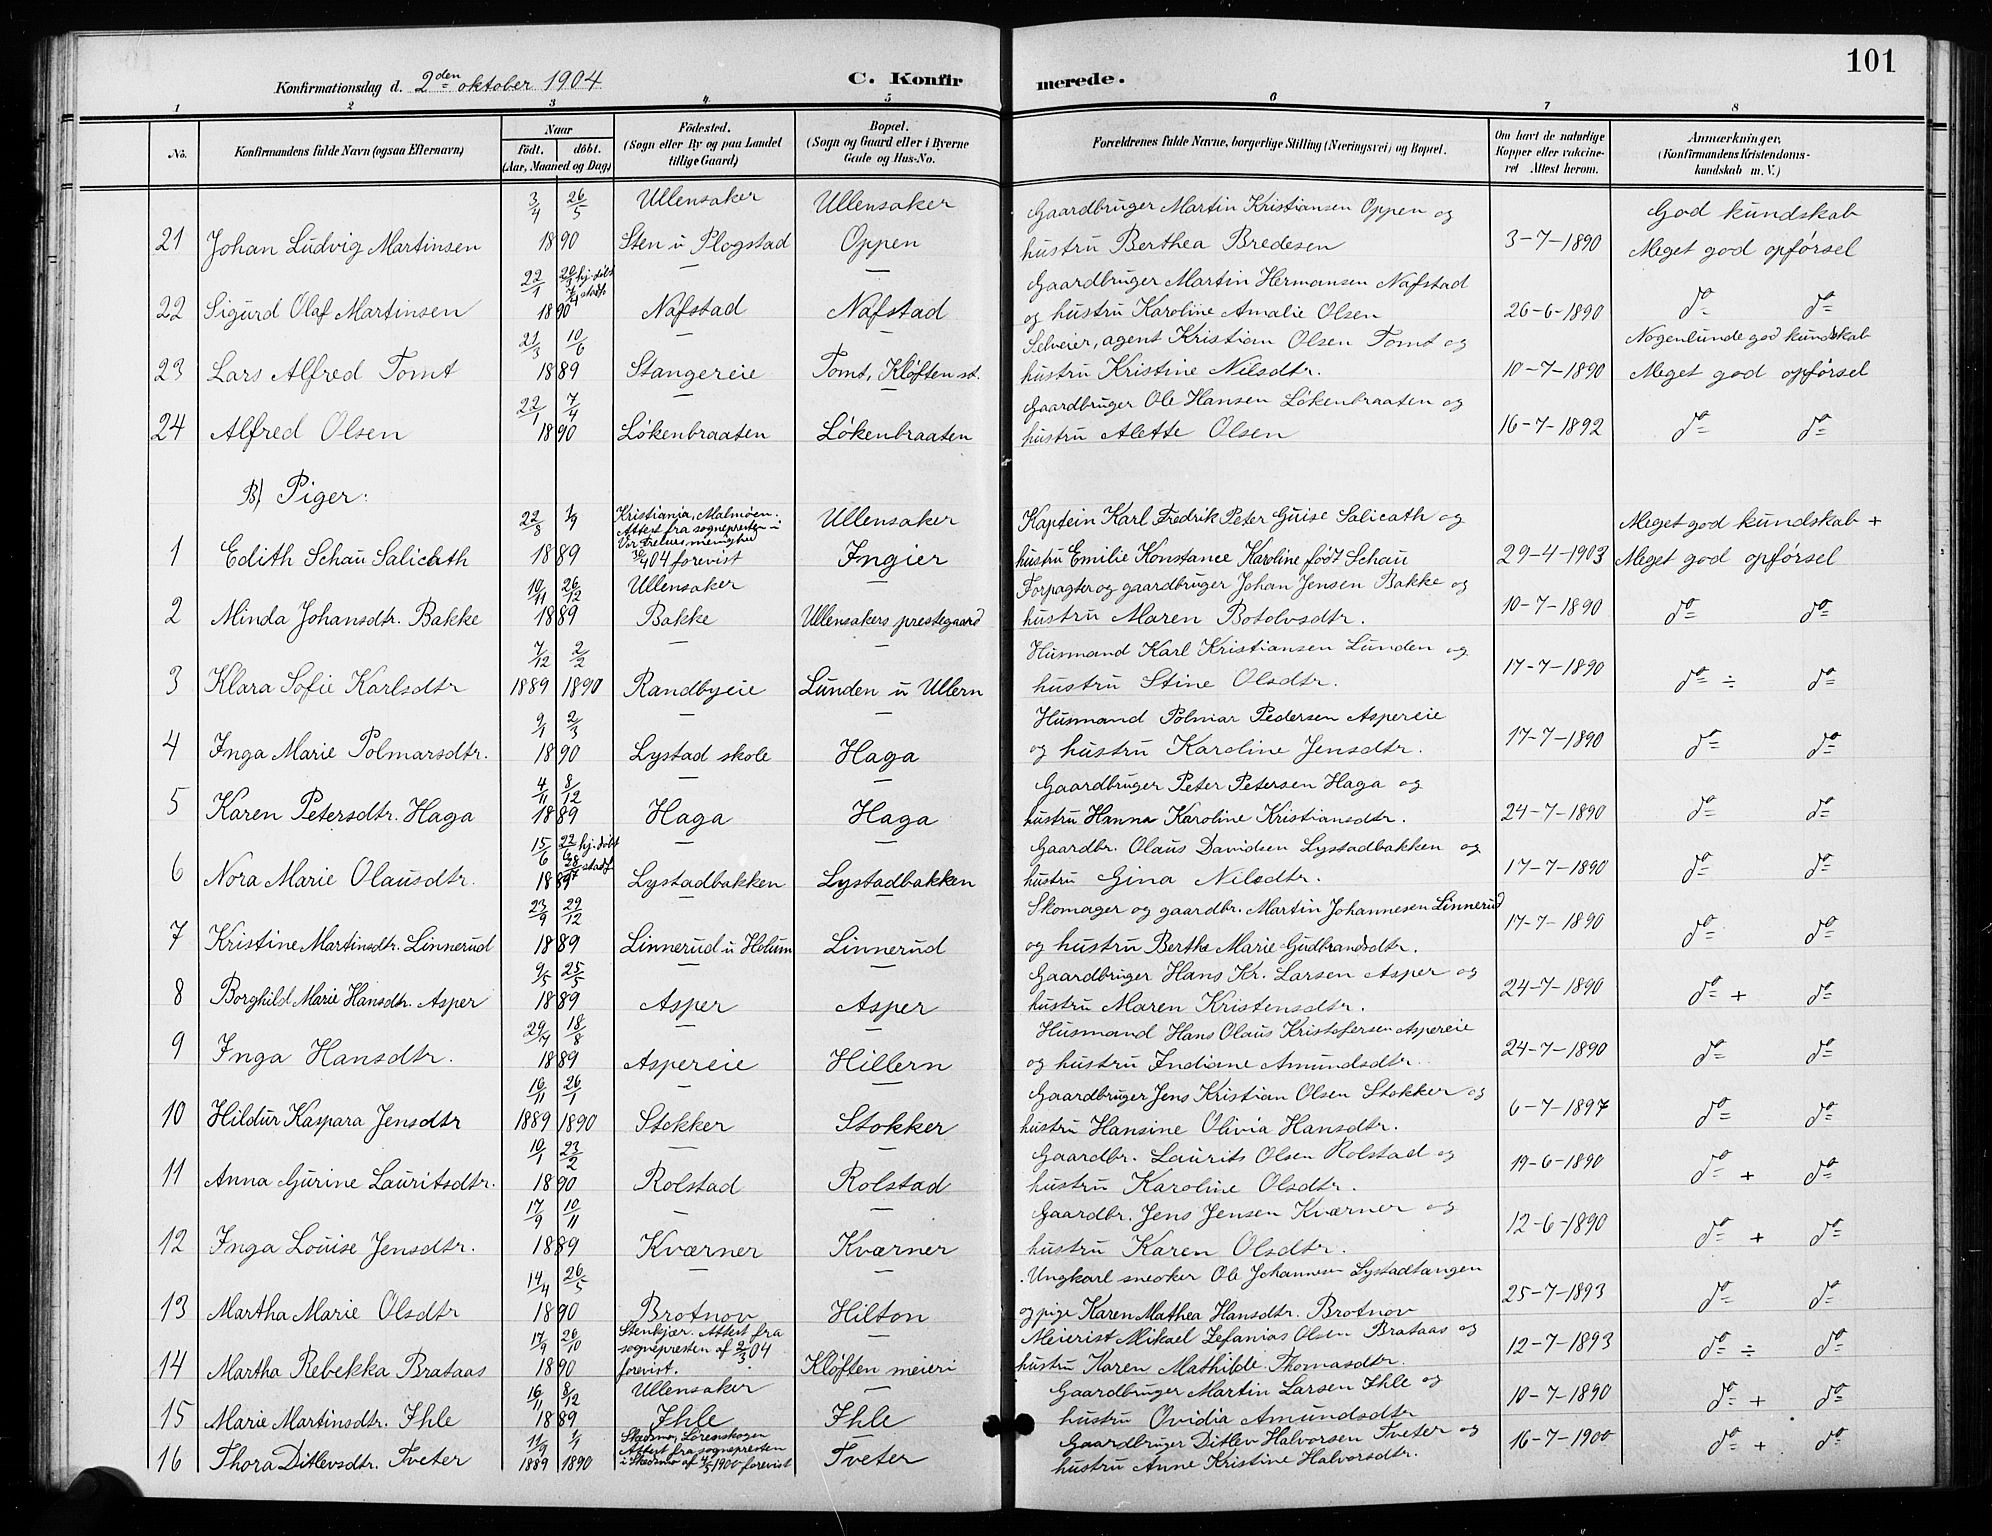 101
Konfirmationsdag d. 2den oktober 1904 C. Konfirmerede.
1 2 3 4 5 6 7 8
No. Konfirmandens fulde Navn (ogsaa Efternavn) Naar Födt. döbt. (Aar, Maaned og Dag) Födested. (Sogn eller By og paa Landet tillige Gaard) Bopæl. (Sogn og Gaard eller i Byerne Gade og Hus-No. Forældrenes fulde Navne, borgerlige Stilling (Næringsvei) og Bopæl. Om havt de naturlige Kopper eller vakcineret Attest herom. Anmærkninger, (Konfirmandens Kristendomskundskab m. V.)
3/4 26/5 Ullensaker Ullensaker Gaardbruger Martin Kristiansen Oppen og God kundskab
21 Johan Ludvig Martinsen 1890 Sten u Plogstad Oppen hustru Berthea Bredesen 3-7-1890 Meget god opførsel
22/1 hj. döbt stadf. — — Gaardbruger Martin Hermansen Nafstad
22 Sigurd Olaf Martinsen 1890 Nafstad Nafstad og hustru Karoline Amalie Olsen 26-6-1890 do do
21/3 10/6 — — Selveier, agent Kristian Olsen Tomt og Nogenlunde god kundskab
23 Lars Alfred Tomt 1889 Stangereie Tomt, Kløften st. hustru Kristine Nilsdtr. 10-7-1890 Meget god opførsel
22/1 7/4 — Gaardbruger Ole Hansen Løkenbraaten og
24 Alfred Olsen 1890 Løkenbraaten Løkenbraaten hustru Alette Olsen 16-7-1892 do do
B/ Piger:
22/8 1/9 Kristiania, Malmøen. Attest fra sognepresten i Ullensaker Kaptein Karl Fredrik Peter Guise Salicath og Meget god kundskab +
1 Edith Schau Salicath 1889 Vor Frelsers menighed 30/9 04 forevist Ingier hustru Emilie Konstance Karoline født Schau 29-4-1903 Meget god opførsel
10/11 26/12 Ullensaker — Forpagter og gaardbruger Johan Jensen Bakke og
2 Minda Johansdtr. Bakke 1889 Bakke Ullensakers prestegaard hustru Maren Botolvsdtr. 10-7-1890 do do
7/12 2/2 — Husmand Karl Kristiansen Lunden og
3 Klara Sofie Karlsdtr 1889 1890 Randbyeie Lunden u Ullern hustru Stine Olsdtr. 17-7-1890 do ÷ do
9/1 2/3 — — Husmand Polmar Pedersen Aspereie
4 Inga Marie Polmarsdtr. 1890 Lystad skole Haga og hustru Karoline Jensdtr. 17-7-1890 do do
4/11 8/12 — — Gaardbruger Peter Petersen Haga og
5 Karen Petersdtr. Haga 1889 Haga Haga hustru Hanna Karoline Kristiansdtr. 24-7-1890 do do
15/6 22/6 hj. döbt 28/7 stadf — — Gaardbr. Olaus Davidsen Lystadbakken og
6 Nora Marie Olausdtr. 1889 Lystadbakken Lystadbakken hustru Gina Nilsdtr. 17-7-1890 do do
23/9 29/12 — — Skomager og gaardbr. Martin Johannesen Linnerud
7 Kristine Martinsdtr. Linnerud 1889 Linnerud u Holum Linnerud og hustru Berthe Marie Gudbrandsdtr. 17-7-1890 do do
9/5 25/5 — — Gaardbruger Hans Kr. Larsen Asper og
8 Borghild Marie Hansdtr. Asper 1889 Asper Asper hustru Maren Kristensdtr. 24-7-1890 do + do
29/7 18/8 — — Husmand Hans Olaus Kristofersen Aspereie
9 Inga Hansdtr. 1889 Aspereie Hillern og hustru Indiane Amundsdtr. 24-7-1890 do do
16/11 26/1 — — Gaardbruger Jens Kristian Olsen Stokker og
10 Hildur Kaspara Jensdtr 1889 1890 Stokker Stokker hustru Hansine Olivia Hansdtr. 6-7-1897 do do
10/1 23/2 — — Gaardbr. Laurits Olsen Rolstad og
11 Anna Gurine Lauritsdtr. 1890 Rolstad Rolstad hustru Karoline Olsdtr. 19-6-1890 do + do
17/9 10/11 — — Gaardbr. Jens Jensen Kværner og
12 Inga Louise Jensdtr. 1889 Kværner Kværner hustru Karen Olsdtr. 12-6-1890 do + do
14/4 26/5 — — Ungkarl snedker Ole Johannesen Lystadtangen
13 Martha Marie Olsdtr 1890 Brotnov Hilton og pige Karen Mathea Hansdtr. Brotnov 25-7-1893 do do
17/9 26/10 Stenkjær. Attest fra sognepresten af 2/3 04 Meierist Mikael Zefanias Olsen Brataas og
14 Martha Rebekka Brataas 1890 forevist. Kløften meieri hustru Karen Mathilde Thomasdtr. 12-7-1893 do ÷ do
16/11 8/12 Ullensaker — Gaardbruger Martin Larsen Ihle og
15 Marie Martinsdtr. Ihle 1889 Ihle Ihle hustru Ovidia Amundsdtr 10-7-1890 do + do
11/9 1/1 Skedsmo, Lørenskogen Attest fra sognepresten — Gaardbruger Ditlev Halvorsen Tveter og
16 Thora Ditlevsdtr. Tveter 1889 1890 i Skedsmo af 1900 forevist Tveter hustru Anne Kristine Halvorsdtr. 16-7-1900 do + do